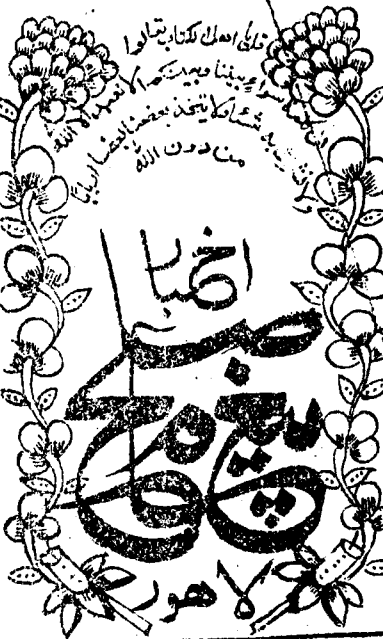 قل یا اهل الکتاب تعالوا
سواء بیننا وبینکم الا نعبد الا الله
ولا نشرک به شیئا ولا یتخذ بعضنا بعضا اربابا
من دون الله
اخبار
پیغام صلح
لاهور